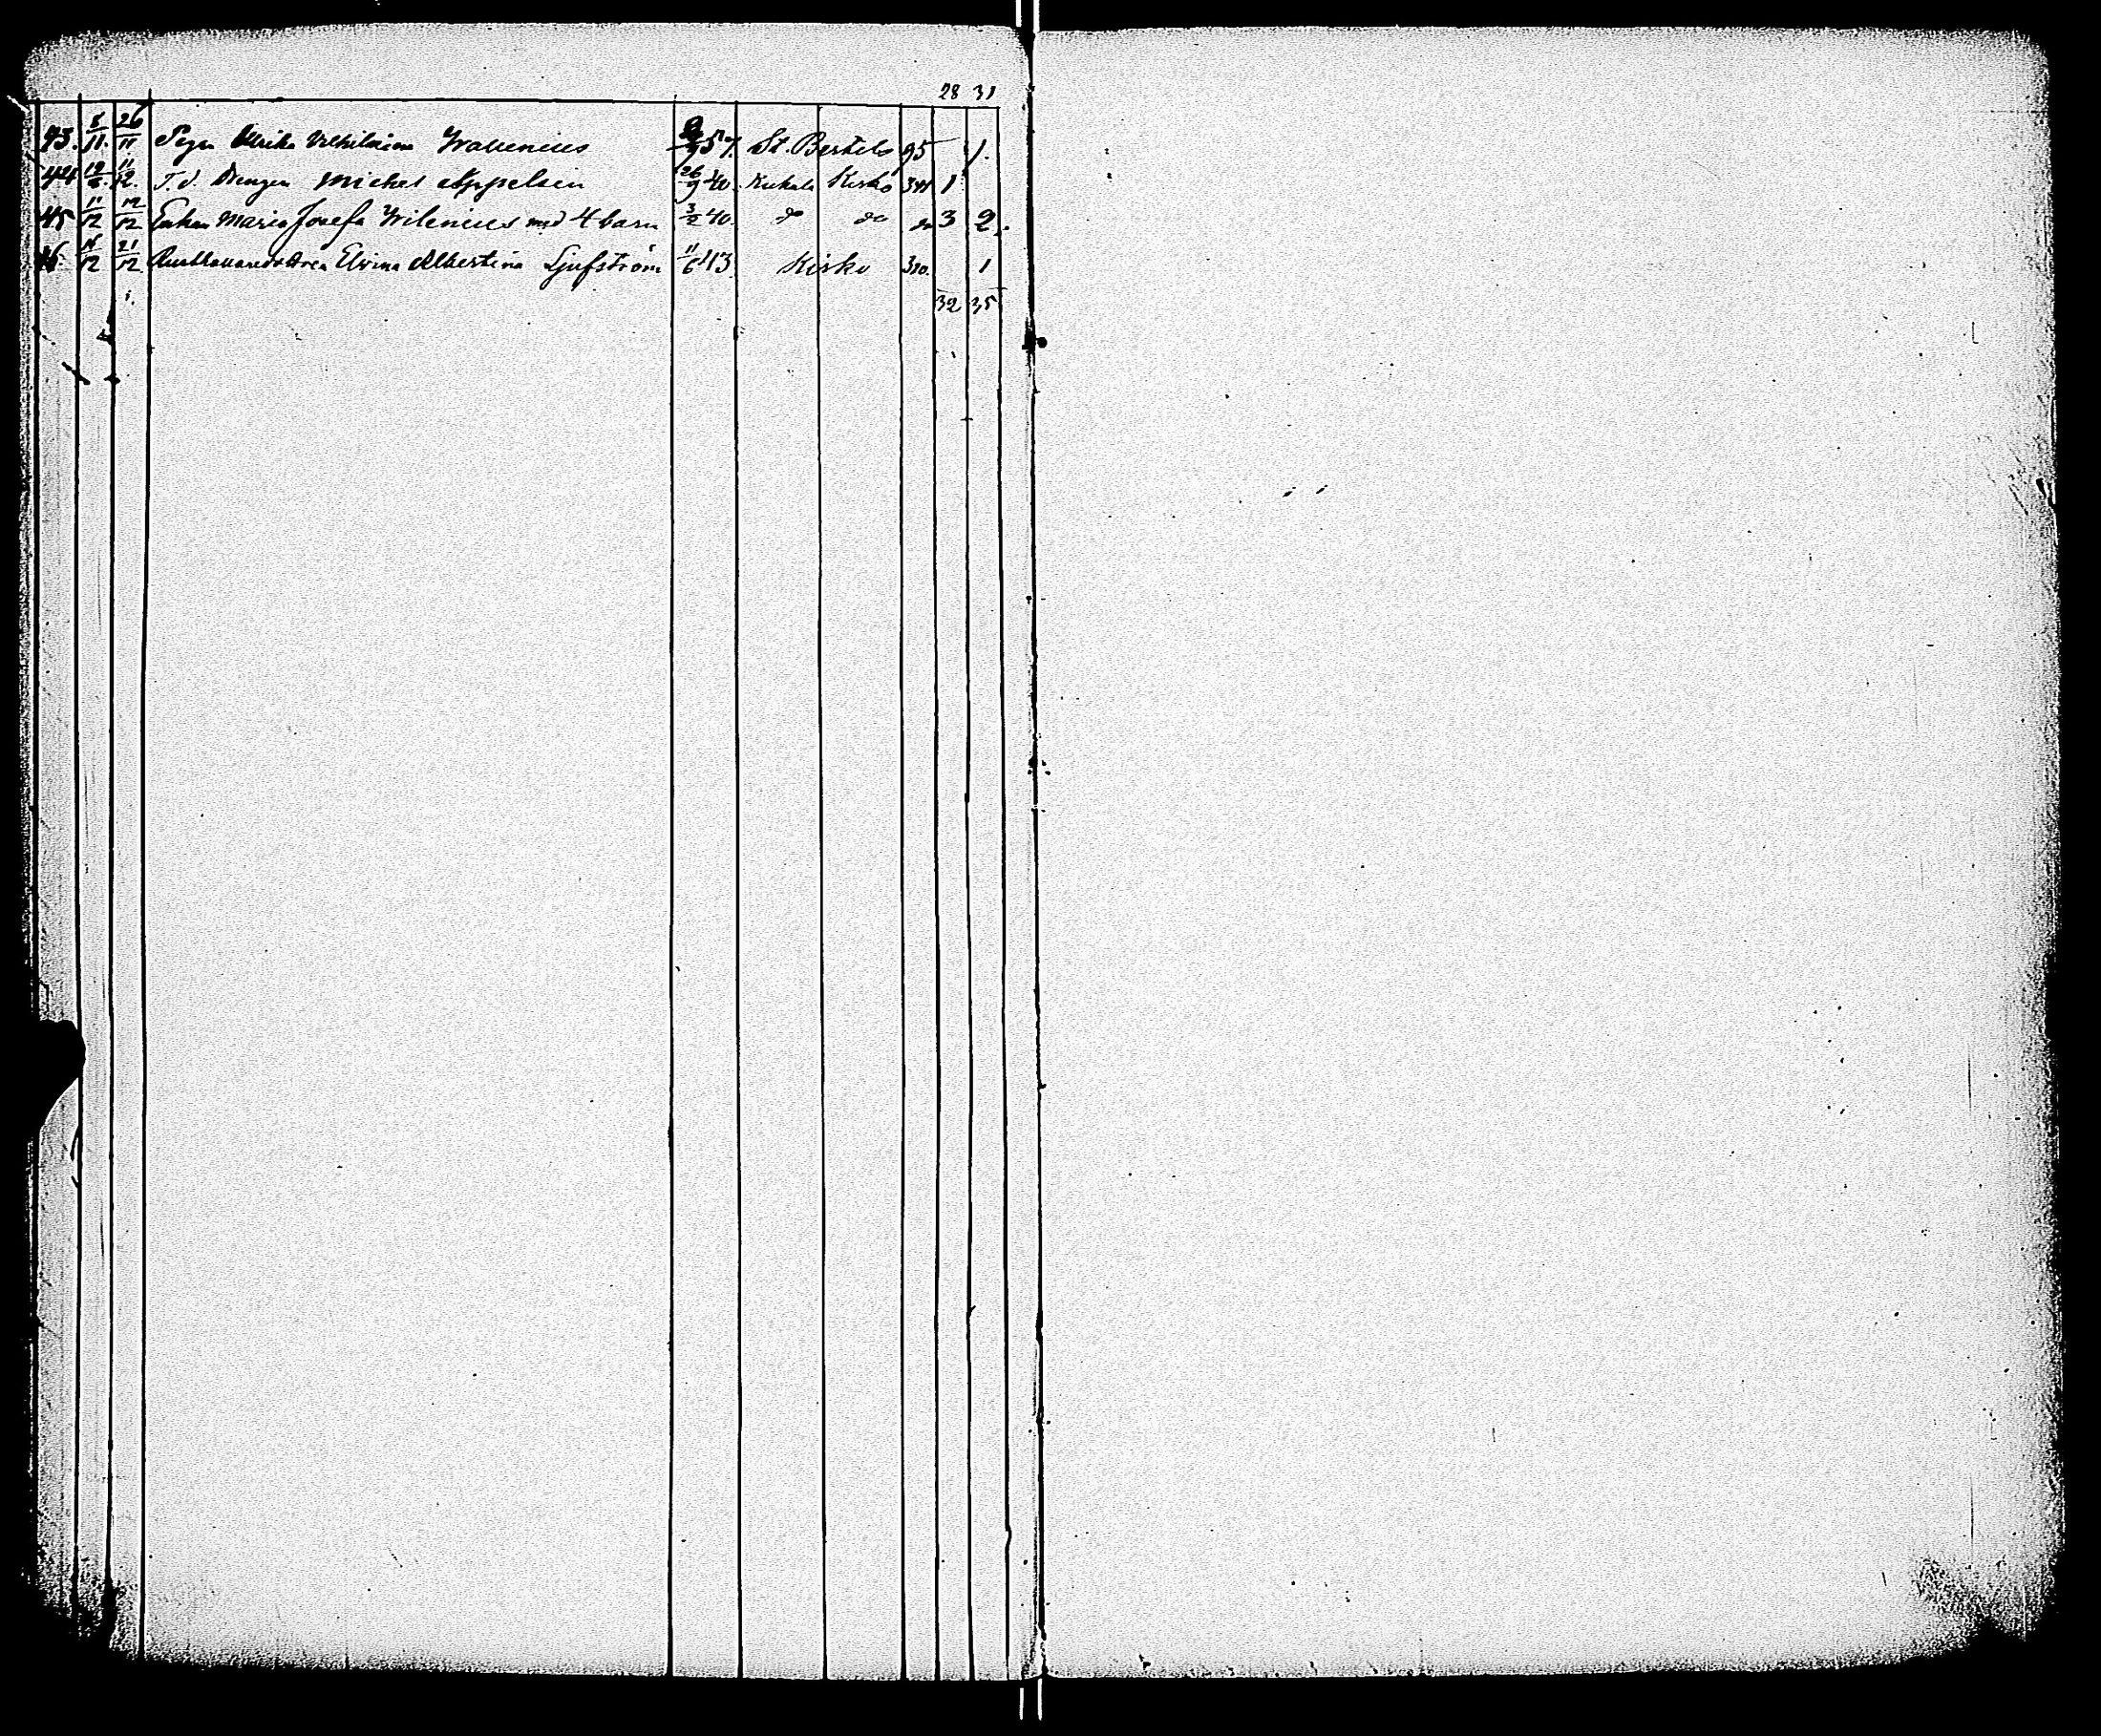 28 31
43. 8/11. 26/11 Pigan Ulrika Vilhelmina Gravenius 57. St. Bertels 95 1.
44 11/12. T. d. Drengen Michel Appelsin 26/9 40. Kukola Kisko 344 1
45 11/12 12/12 Enkan Maria Josefa Wilenius med 4 barn 3/2 40. do do do 3 2.
46. 21/12 Elvina Albertina Ljufström 11/6 43 Kisko 310. 1
32 35